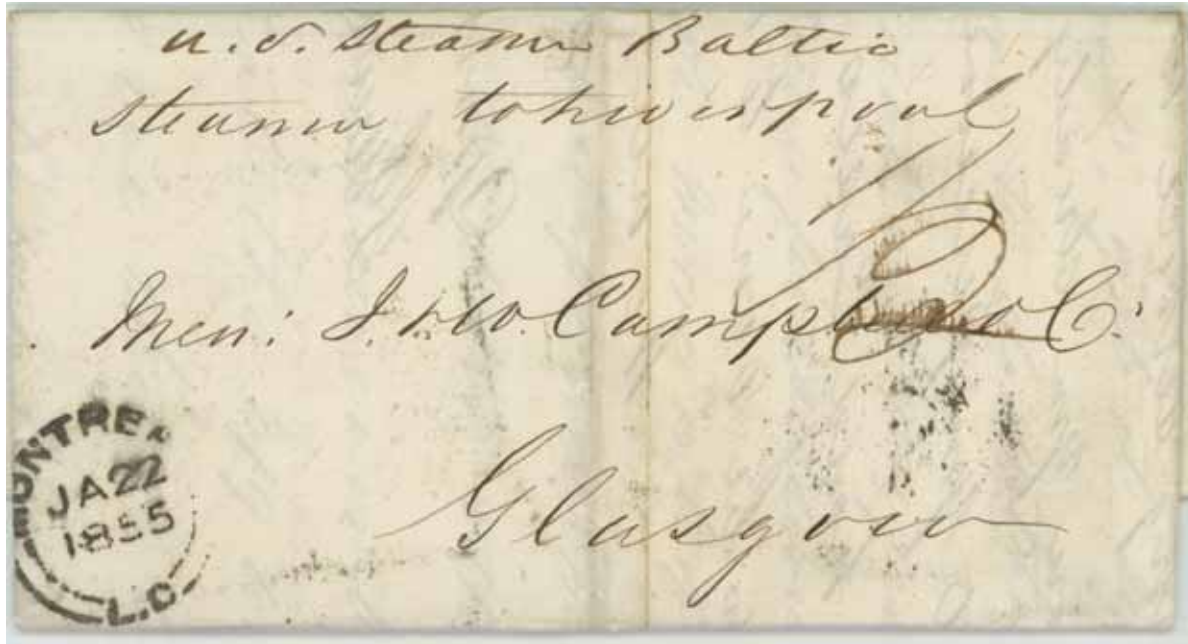 U.S. Steamer Baltic
steamer to Liverpool
1/2
Mess: J. & W. Campbell & Co.
Glasgow
MONTREAL
JA 22
1855
L.C.